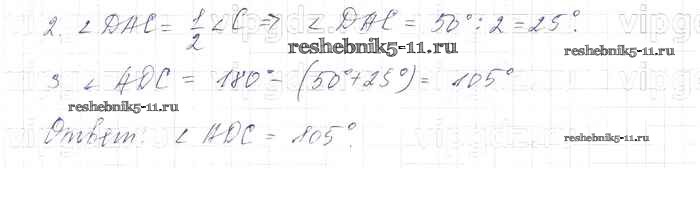 2. ∠DAC = 1/2 ∠C => ∠DAC = 50° : 2 = 25°.
reshebnik5-11.ru
reshebnik5-11.ru
3. ∠ADC = 180° - (50° + 25°) = 105°
reshebnik5-11.ru
Ответ: ∠ADC = 105°.
reshebnik5-11.ru